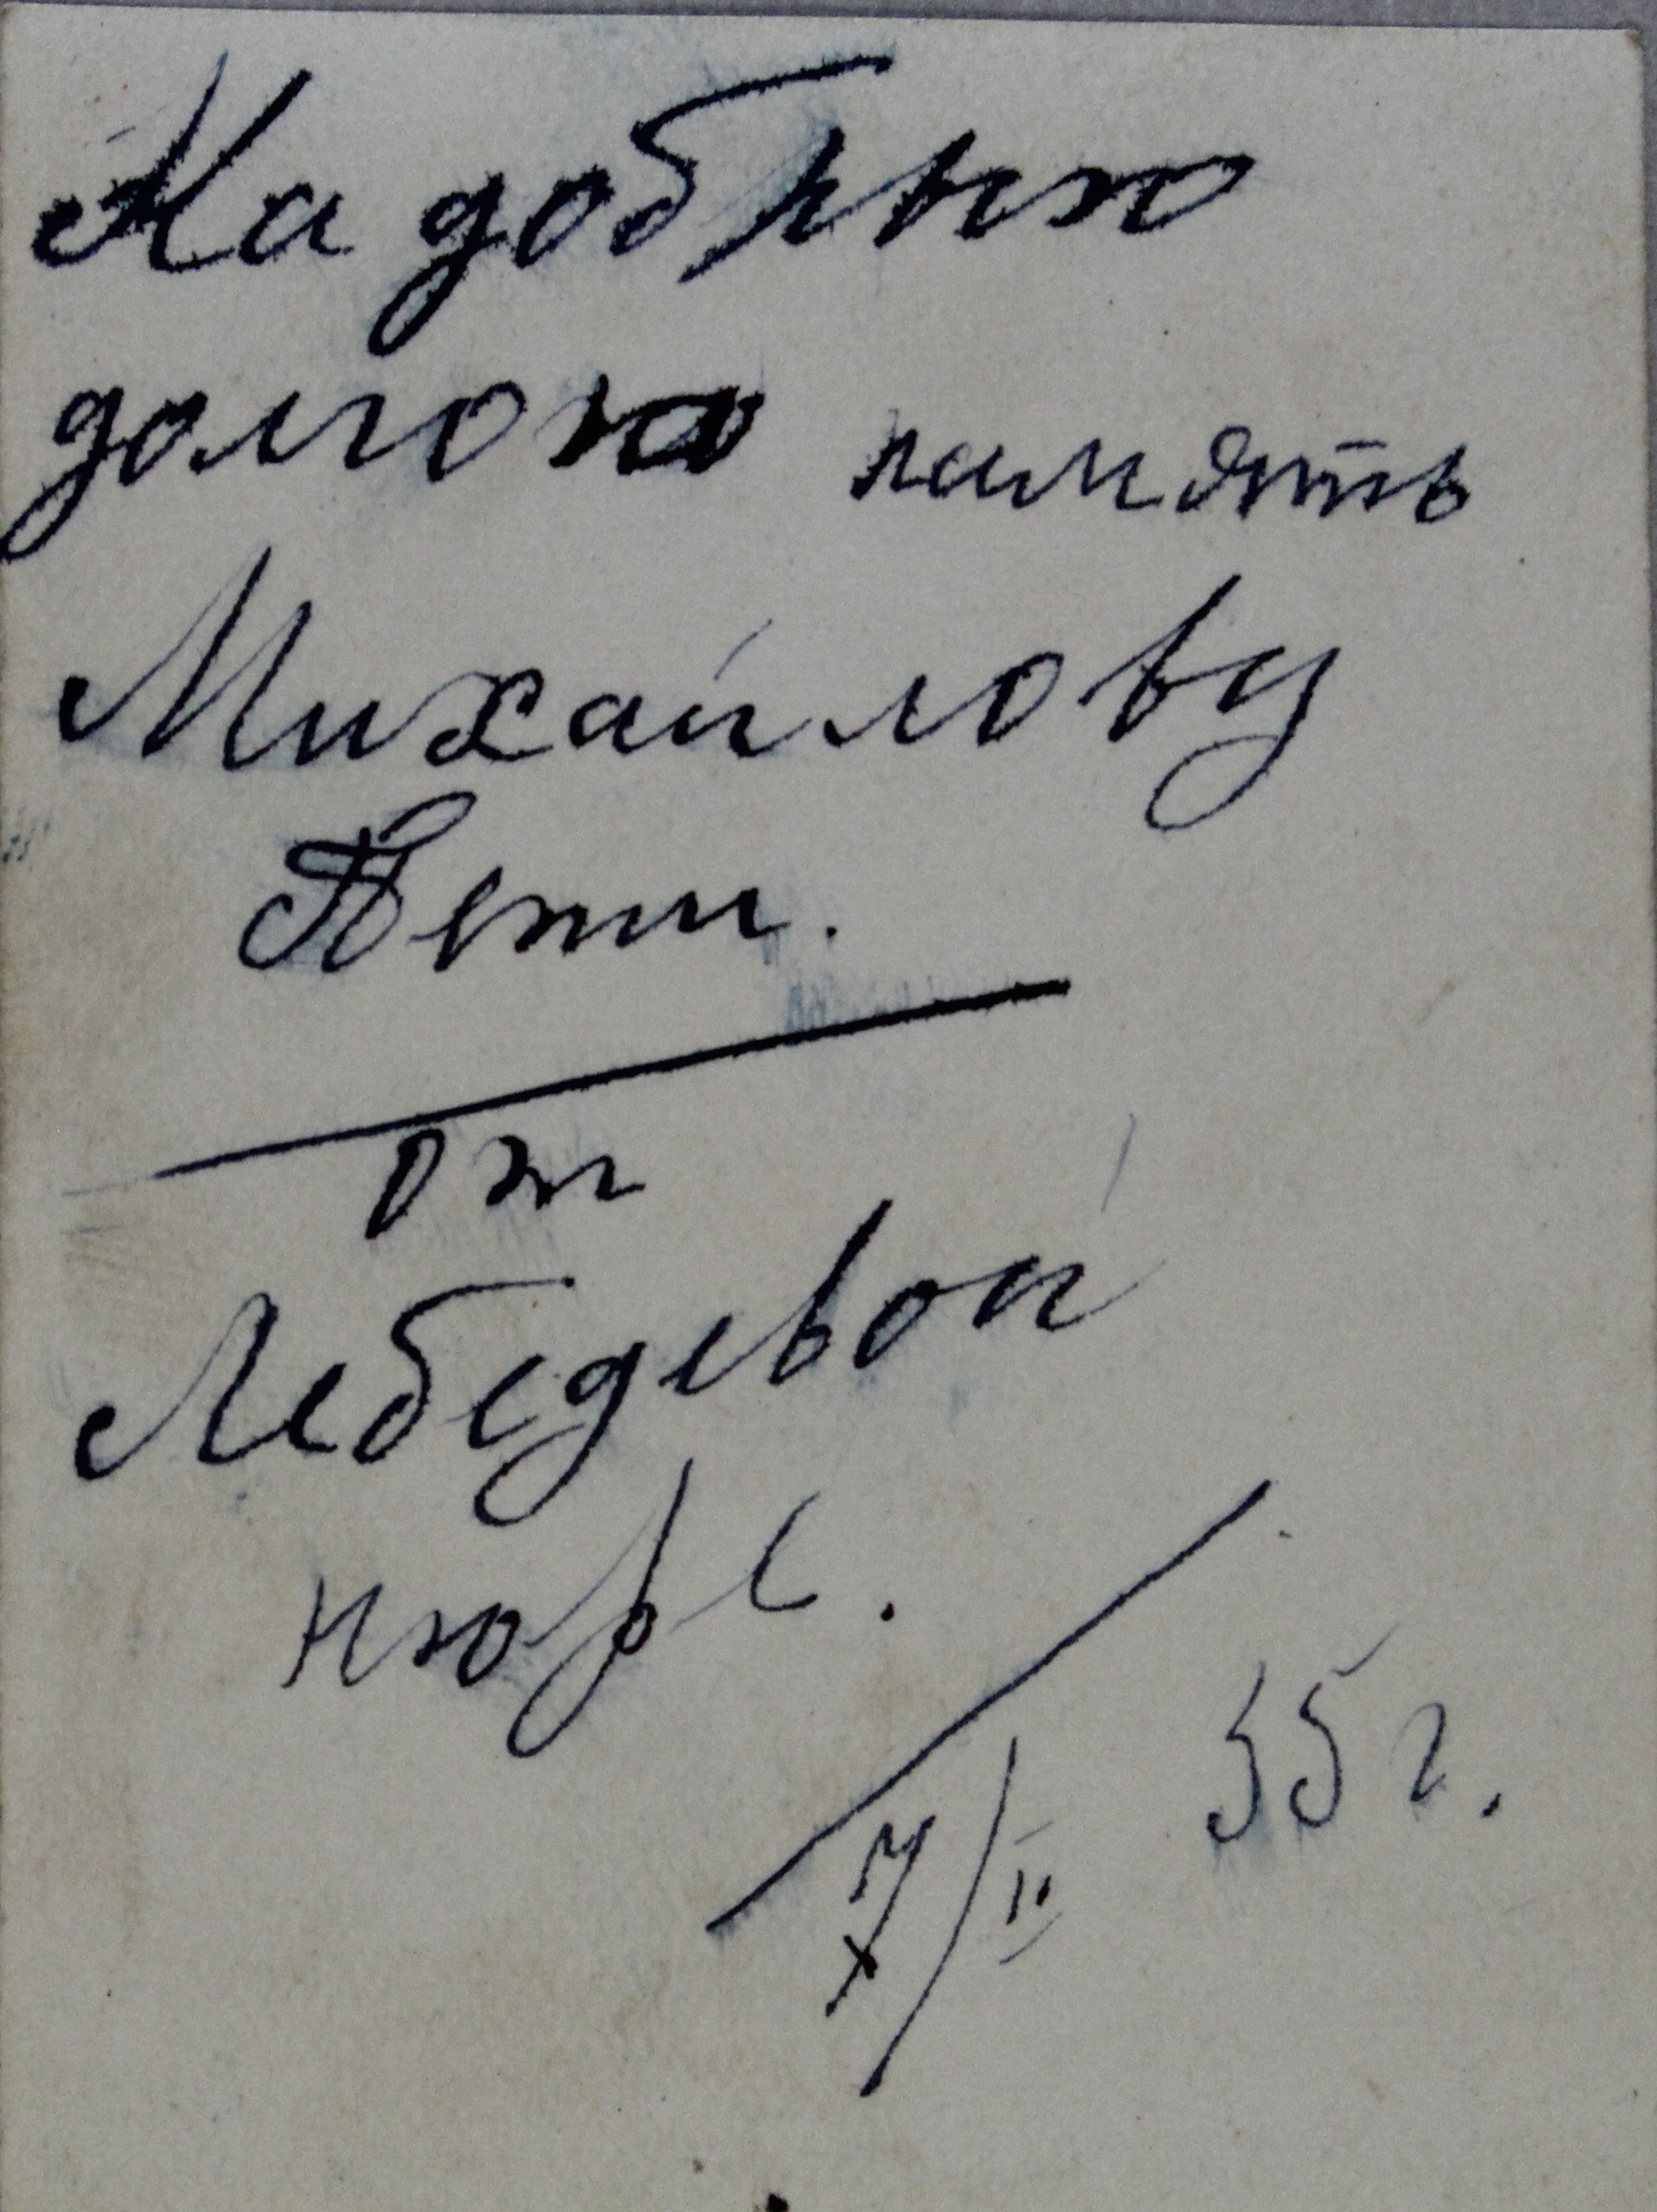 На добрыю
долгою память
Михайлову
Пети.
от
Лебедевой
нюрс.
7/II 55 г.